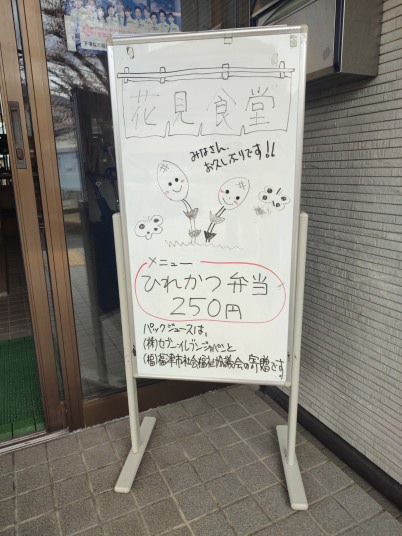 花見食堂
みなさん、
お久しぶりです!!
メニュー
ひれかつ弁当
250円
パックジュースは、
(株)セブン-イレブンジャパンと
(福)福津市社会福祉協議会の寄贈です